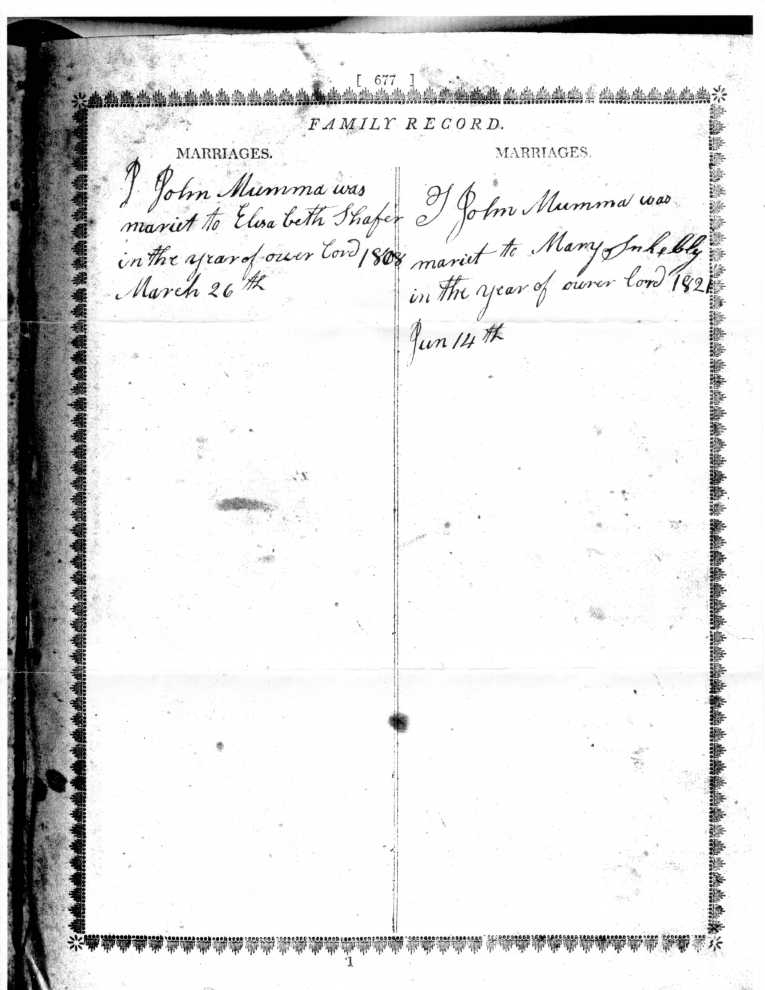 [ 677 ]
FAMILY RECORD.
MARRIAGES.
I John Mumma was
mariet to Elisabeth Shafer
in the year of ouer Lord 1808
March 26th
MARRIAGES.
I John Mumma was
mariet to Mary
in the year of ourer Lord 1821
Jun 14th
1